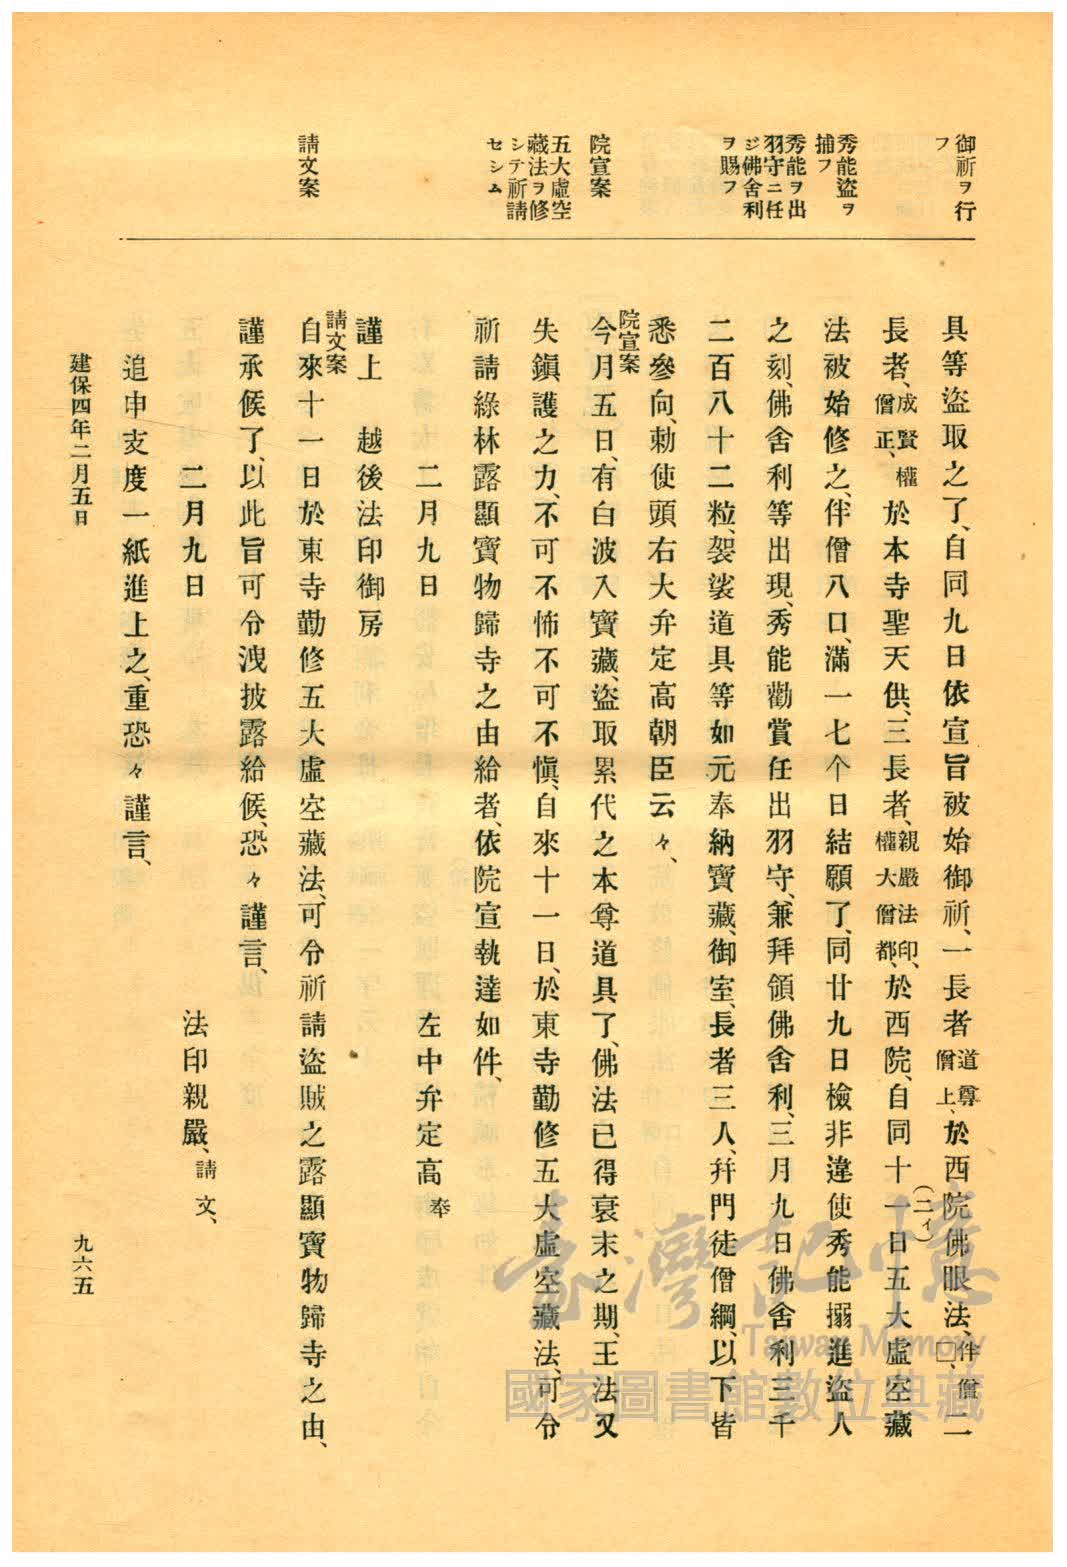 御祈ヲ行
フ
秀能盜ヲ
捕フ
秀能ヲ出
羽守ニ任
ジ佛舍利
ヲ賜フ
院宣案
五大虛空
藏法ヲ修
シテ祈請
セシム
請文案
具等盜取之了、自同九日依宣旨被始御祈、一長者道尊僧上、於西院佛眼法、伴僧□、二
長者、成賢權僧正、於本寺聖天供、三長者、親嚴法印、權大僧都、於西院、自同十一日五大虛空藏
(二イ)
法被始修之、伴僧八口、滿一七个日結願了、同廿九日檢非違使秀能搦進盜人
之刻、佛舍利等出現、秀能勸賞任出羽守、兼拜領佛舍利、三月九日佛舍利三千
二百八十二粒、袈裟道具等如元奉納寶藏、御室、長者三人、幷門徒僧綱、以下皆
悉參向、勅使頭、右大弁定高朝臣云々、
院宣案
今月五日、有白波入寶藏、盜取累代之本尊道具了、佛法已得衰末之期、王法又
失鎭護之力、不可不怖不可不愼、自來十一日、於東寺勤修五大虛空藏法、可令
祈請綠林露顯寶物歸寺之由給者、依院宣執達如件、
二月九日 左中弁定高奉
謹上 越後法印御房
請文案
自來十一日於東寺勤修五大虛空藏法、可令祈請盜賊之露顯寶物歸寺之由、
謹承候了、以此旨可令洩披露給候、恐々謹言、
二月九日 法印親嚴、請文、
追申支度一紙進上之、重恐々謹言、
建保四年二月五日
九六五
臺灣記憶
Taiwan Memory
國家圖書館數位典藏